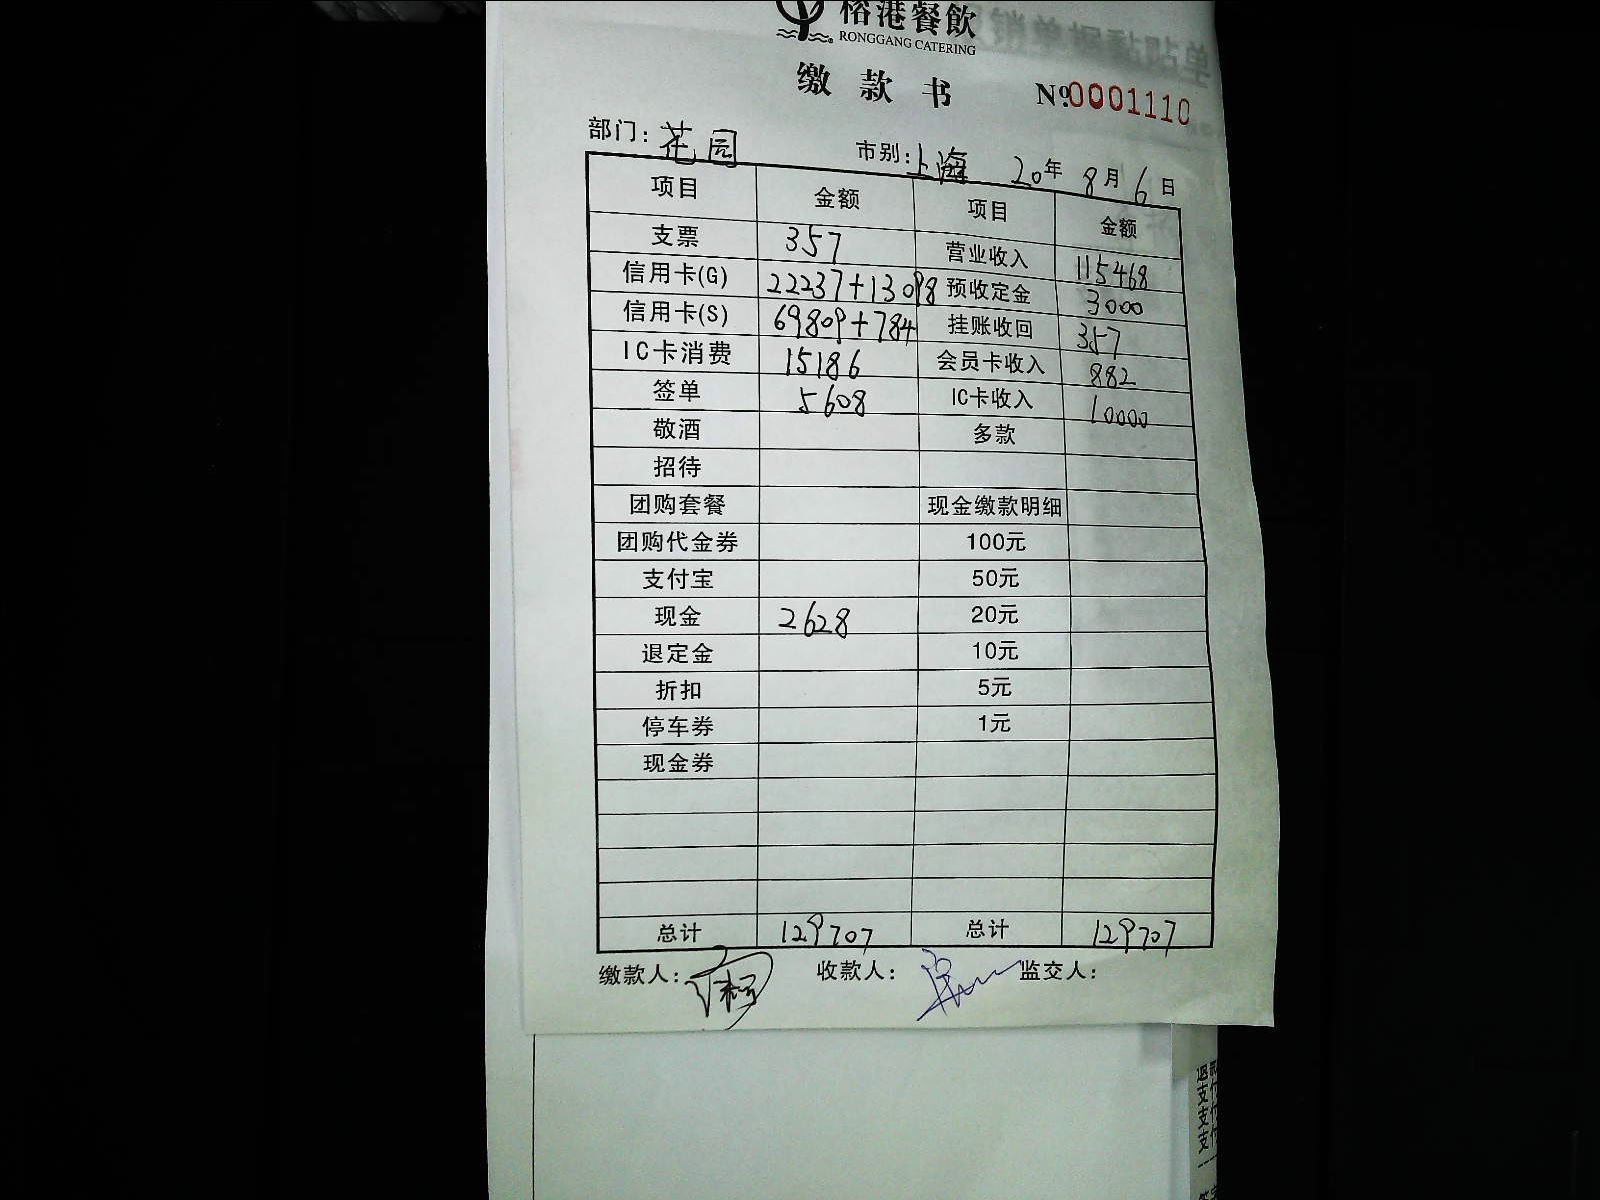 榕港餐飲
RONGGANG CATERING
销单据黏贴单
缴款书 №0001110
部门：花园 市别：上海 20年8月6日
项目 金额 项目 金额
支票 357 营业收入 115468
信用卡(G) 22237+13098 预收定金 3000
信用卡(S) 69809+784 挂账收回 357
IC卡消费 15186 会员卡收入 882
签单 5608 IC卡收入 10000
敬酒 多款
招待
团购套餐 现金缴款明细
团购代金券 100元
支付宝 50元
现金 2628 20元
退定金 10元
折扣 5元
停车券 1元
现金券
总计 129707 总计 129707
缴款人： 收款人： 监交人：